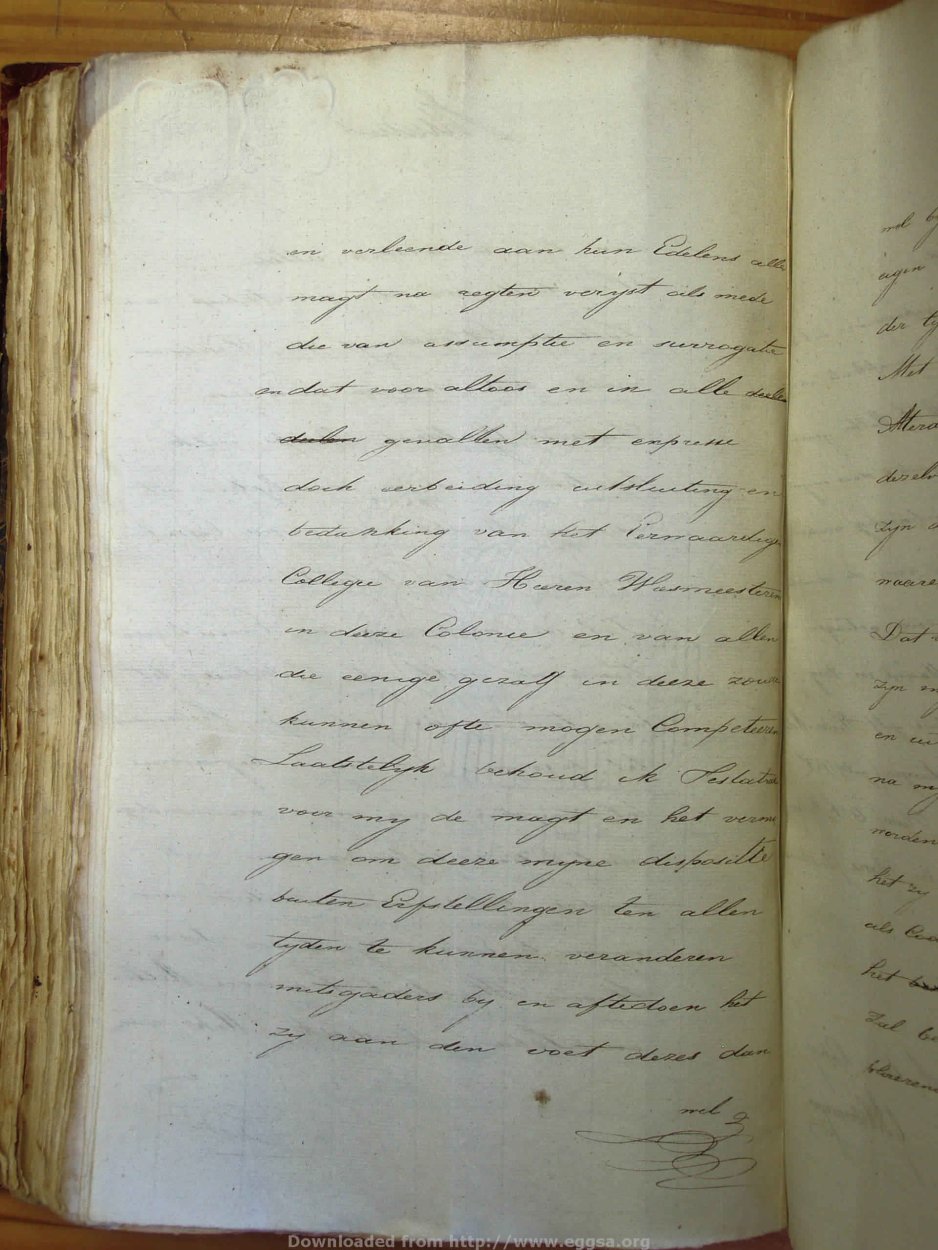 en verleende aan hun Edelens alle
magt na regten veryst als mede
die van assumptie en surrogatie
en dat voor altoos en in alle deelen
deelen gevallen met expresse
doch eerbieding uitsluiting en
bedankking van het Eerwaardige
Collegie van Heeren Weesmeesteren
in deeze Colonie en van allen
die eenige gezag in deeze zoude
kunnen ofte mogen Competeeren
Laatstelyk behoud ik Testatrice
voor my de magt en het vermo
gen om deeze myne dispositie
buiten Erfstellingen ten allen
tyden te kunnen veranderen
mitsgaders by en aftedoen het
zy aan den voet dezes dan
wel
wel by
eigen
der ty
Met
Attera
dezelv
zyn
waare
Dat
zyn m
en
na my
worden
het zy
als Cod
het
zal be
Downloaded from http://www.eggsa.org